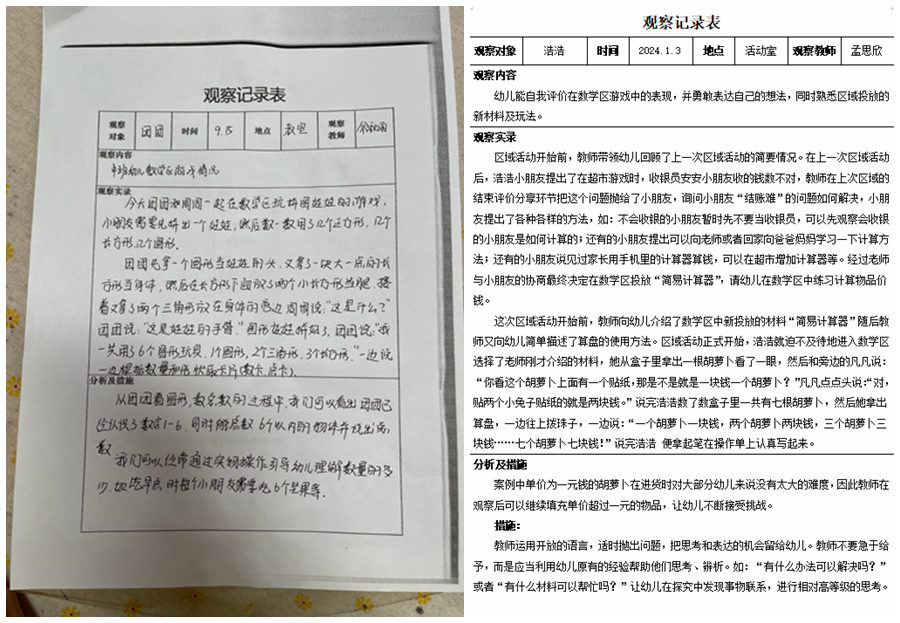 观察记录表
观察对象 团团 时间 9.15 地点 教室 观察教师
观察内容
中班幼儿数学区游戏情况
观察实录
今天团团和周周一起在数学区玩拼图娃娃的游戏,
小朋友需要先拼出一个娃娃,然后数一数用了几个正方形,几个
长方形,几个圆形。
团团先拿一个圆形当娃娃的头,又拿了一块大一点的长
方形当身体,然后在长方形下面放了两个小长方形当腿,接
着又拿了两个三角形放在身体的旁边 周周说:"这是什么?"
团团说:"这是娃娃的手臂,"图形娃娃拼好了,团团说"我
一共用了6个图形玩具,1个圆形,2个三角形,3个长方形,"一边说
一边根据数量和形状取卡片(数卡,点卡)。
分析及措施
从团团看图形,数点数的过程中,我们可以看出团团已
经认识了数字1-6,同时能点数6个以内的物体并说出总
数
我们可以经常通过实物操作引导幼儿理解数量的多
少,如吃早点时每个小朋友需要吃6个苹果等.
观察记录表
观察对象 浩浩 时间 2024.1.3 地点 活动室 观察教师 孟思欣
观察内容
幼儿能自我评价在数学区游戏中的表现,并勇敢表达自己的想法,同时熟悉区域投放的
新材料及玩法。
观察实录
区域活动开始前,教师带领幼儿回顾了上一次区域活动的简要情况。在上一次区域活动
后,浩浩小朋友提出了在超市游戏时,收银员安安小朋友收的钱数不对,教师在上次区域的
结束评价分享环节把这个问题抛给了小朋友,询问小朋友“结账难”的问题如何解决,小朋
友提出了各种各样的方法,如:不会收银的小朋友暂时先不要当收银员,可以先观察会收银
的小朋友是如何计算的;还有的小朋友提出可以向老师或者回家向爸爸妈妈学习一下计算方
法;还有的小朋友说见过家长用手机里的计算器算钱,可以在超市增加计算器等。经过老师
与小朋友的协商最终决定在数学区投放“简易计算器”,请幼儿在数学区中练习计算物品价
钱。
这次区域活动开始前,教师向幼儿介绍了数学区中新投放的材料“简易计算器”随后教
师又向幼儿简单描述了算盘的使用方法。区域活动正式开始,浩浩就迫不及待地进入数学区
选择了老师刚才介绍的材料,她从盒子里拿出一根胡萝卜看了一眼,然后和旁边的凡凡说:
“你看这个胡萝卜上面有一个贴纸,那是不是就是一块钱一个胡萝卜?”凡凡点点头说:“对,
贴两个小兔子贴纸的就是两块钱。”说完浩浩数了数盒子里一共有七根胡萝卜,然后她拿出
算盘,一边往上拨珠子,一边说:“一个胡萝卜一块钱,两个胡萝卜两块钱,三个胡萝卜三
块钱……七个胡萝卜七块钱!”说完浩浩 便拿起笔在操作单上认真写起来。
分析及措施
案例中单价为一元钱的胡萝卜在进货时对大部分幼儿来说没有太大的难度,因此教师在
观察后可以继续填充单价超过一元的物品,让幼儿不断接受挑战。
措施:
教师运用开放的语言,适时抛出问题,把思考和表达的机会留给幼儿。教师不要急于给
予,而是应当利用幼儿原有的经验帮助他们思考、辨析。如:“有什么办法可以解决吗?”
或者“有什么材料可以帮忙吗?”让幼儿在探究中发现事物联系,进行相对高等级的思考。